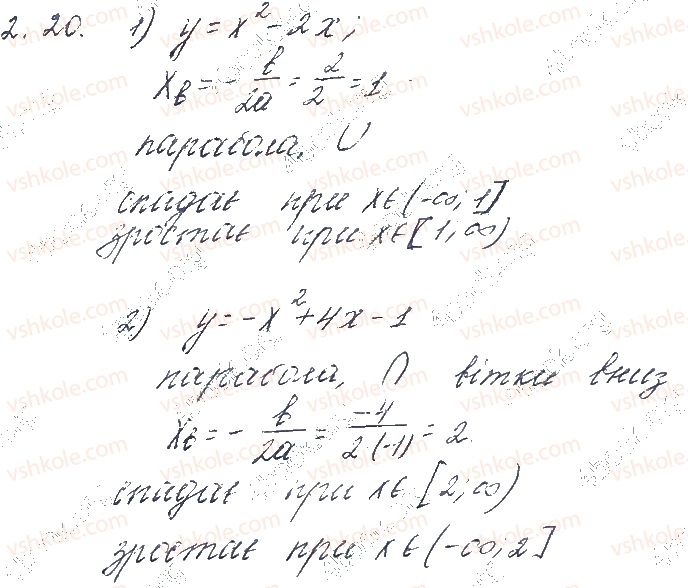 2.20. 1) y = x² - 2x;
xв = - в/2a = 2/2 = 1
парабола, ∪
спадає при x∈(-∞, 1]
зростає при x∈[1, ∞)
2) y = -x² + 4x - 1
парабола, ∩ вітки вниз
xв = - в/2a = -4/2(-1) = 2
спадає при x∈[2; ∞)
зростає при x∈(-∞, 2]
vshkole.com